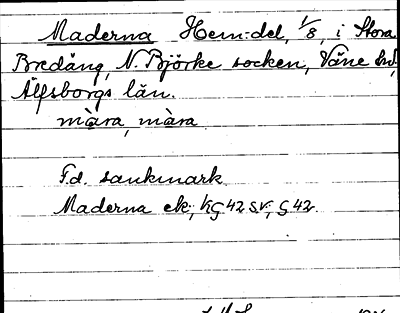 Maderna Hem:del, 1/8, i Stora
Bredäng, N. Björke socken, Väne hd,
Älfsborgs län.
màra, màra
F.d. sankmark.
Maderna ek; kG 42 SV, G 42.